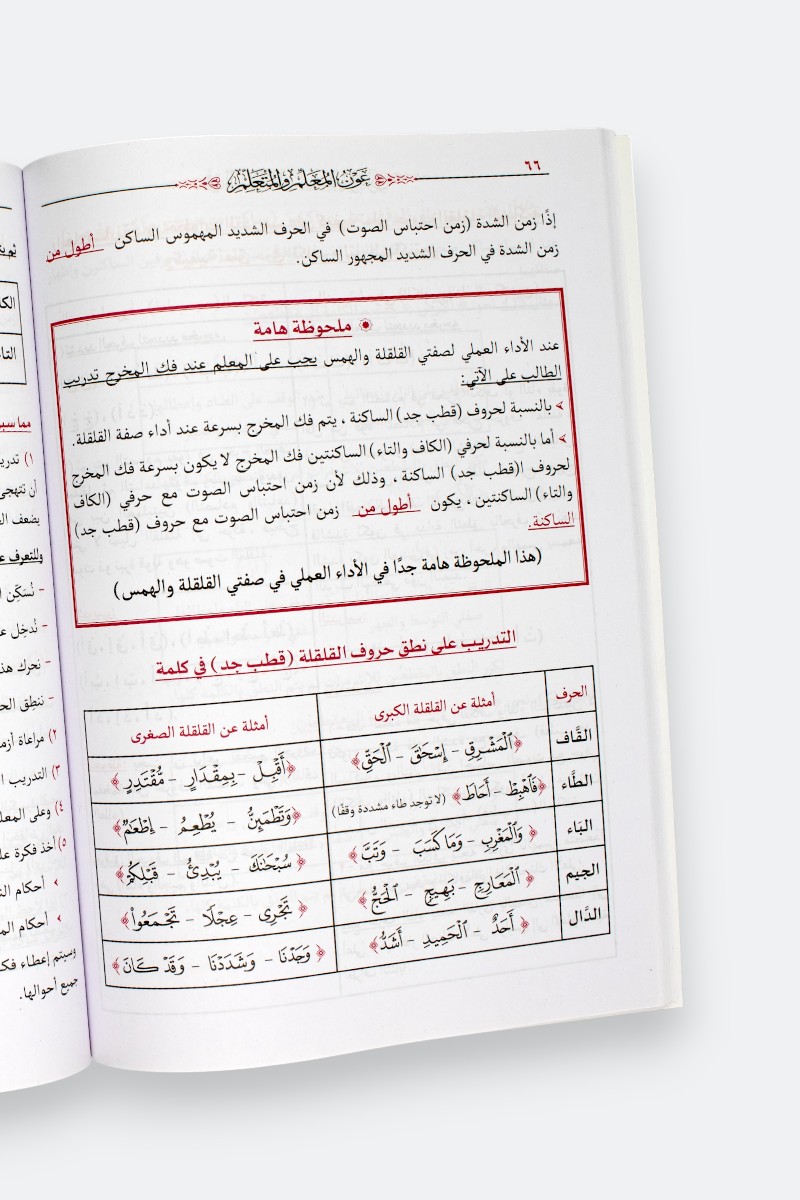 ٦٦
عون المعلم والمتعلم
إذًا زمن الشدة (زمن احتباس الصوت) في الحرف الشديد المهموس الساكن أطول من
زمن الشدة في الحرف الشديد المجهور الساكن.
ملحوظة هامة
عند الأداء العملي لصفتي القلقلة والهمس يجب على المعلم عند فك المخرج تدريب
الطالب على الآتي:
بالنسبة لحروف (قطب جد) الساكنة ، يتم فك المخرج بسرعة عند أداء صفة القلقلة.
أما بالنسبة لحرفي (الكاف والتاء) الساكنتين فك المخرج لا يكون بسرعة فك المخرج
لحروف (قطب جد) الساكنة ، وذلك لأن زمن احتباس الصوت مع حرفي (الكاف
والتاء) الساكنتين ، يكون أطول من زمن احتباس الصوت مع حروف (قطب جد)
الساكنة.
(هذا الملحوظة هامة جدًا في الأداء العملي في صفتي القلقلة والهمس)
التدريب على نطق حروف القلقلة (قطب جد) في كلمة
الحرف أمثلة عن القلقلة الكبرى أمثلة عن القلقلة الصغرى
القَاف ﴿ٱلْمَشْرِقِ - إِسْحَٰقَ - ٱلْحَقِّ﴾ ﴿أَقْبِلْ - بِمِقْدَارٍ - مُّقْتَدِرٍ﴾
الطَّاء ﴿فَٱهْبِطْ - أَحَاطَ﴾ (لا توجد طاء مشددة وقفًا) ﴿وَتَطْمَئِنُّ - يُطْعِمُ - إِطْعَٰمٌ﴾
البَاء ﴿وَٱلْمَغْرِبِ - وَمَا كَسَبَ - وَتَبَّ﴾ ﴿سُبْحَٰنَكَ - يُبْدِئُ - قَبْلِكُم﴾
الجيم ﴿ٱلْمَعَارِجِ - بَهِيجٍ - ٱلْحَجُّ﴾ ﴿تَجْرِى - عِجْلًا - تَجْمَعُوا۟﴾
الدَّال ﴿أَحَدٌ - ٱلْحَمِيدِ - أَشَدُّ﴾ ﴿وَجَدْنَا - وَشَدَدْنَا - وَقَدْ كَانَ﴾
مما سب
١) تدري
أن تتهجى
يضعف
وللتعرف
- نُسكِّن
- نُدخِل
- نحرك هذ
- ننطق
٢) مراعاة
٣) التدريب
٤) وعلى
٥) أخذ فكرة
أحكام
أحكام
وسيتم إعطاء
جميع أحوالها.